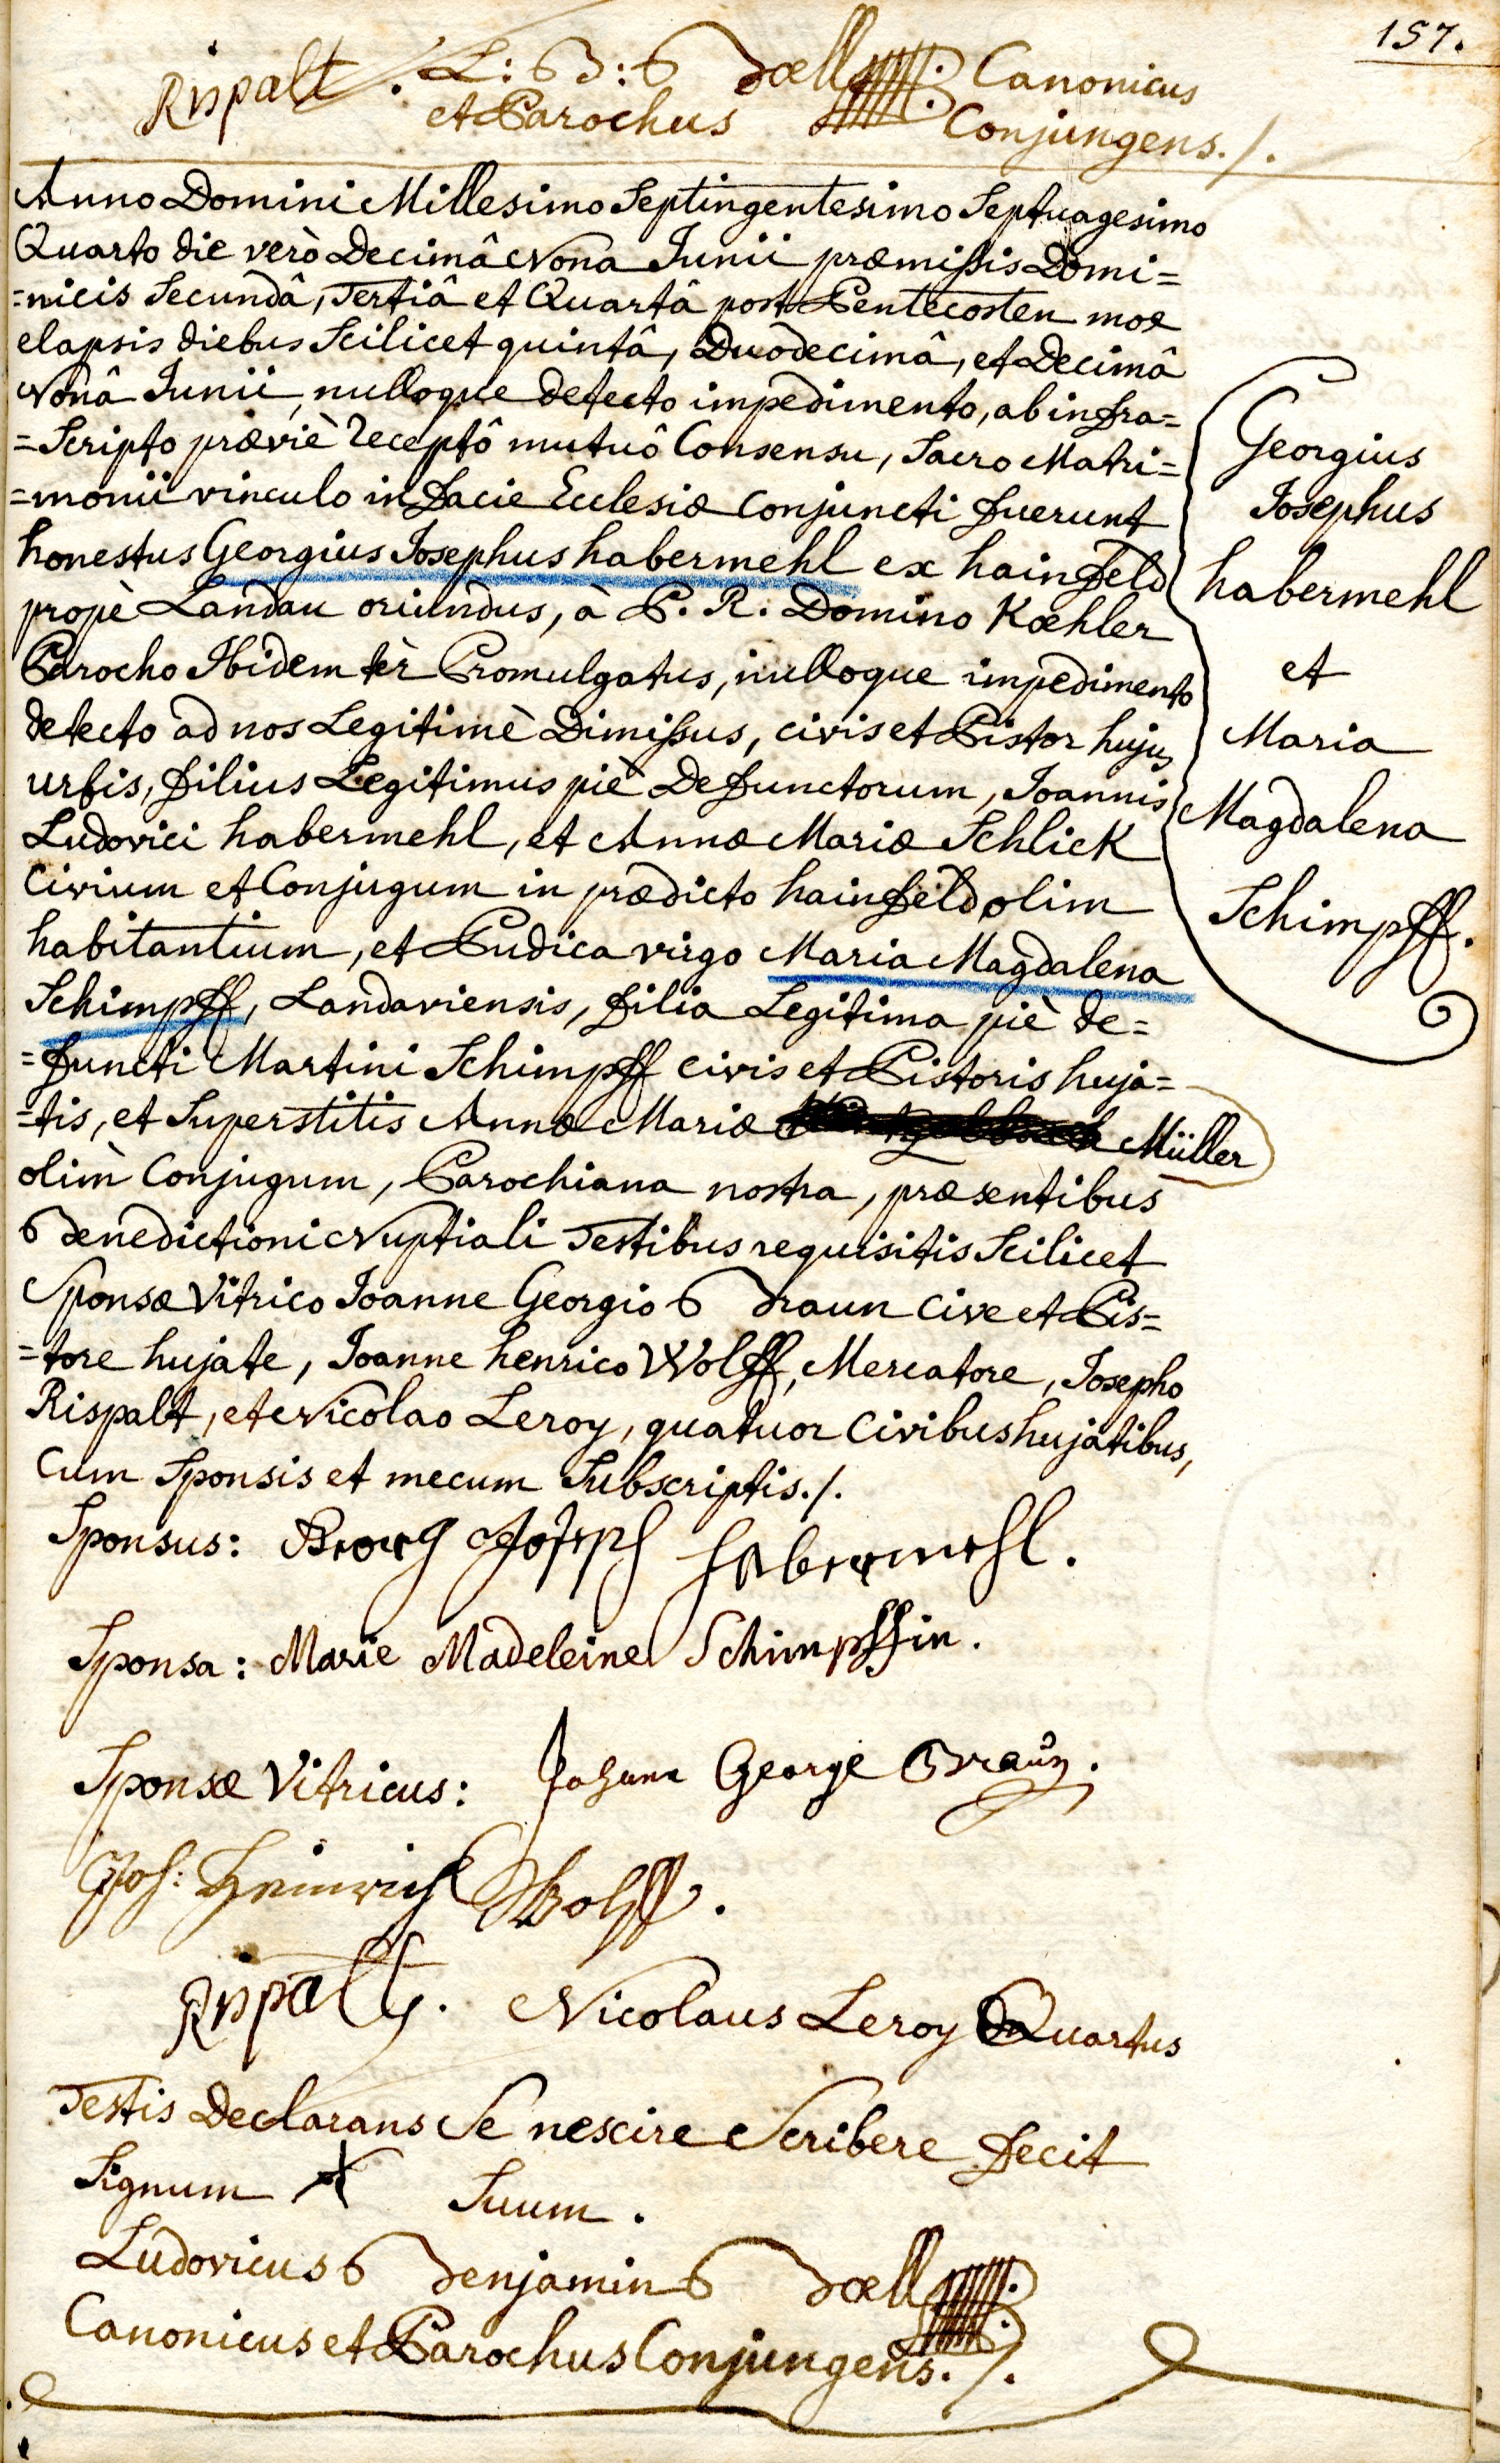 157.
Rispalt ./. L: B: Boell Canonicus
et Parochus Conjungens./.
Anno Domini Millesimo Septingentesimo Septuagesimo
Quarto die verò Decimâ Nona Junii præmissis Domi=
=nicis Secundâ, Tertiâ et Quartâ post Pentecosten mox
elapsis diebus Scilicet quintâ, Duòdecimâ, et Decimâ
Nonâ Junii, nulloque detecto impedimento, ab infra=
=Scripto præviè receptô mutuô Consensu, Sacro Matri=
=monii vinculo in facie Ecclesiæ Conjuncti fuerunt
honestus Georgius Josephus habermehl ex hainfeld
propè Landau oriundus, à P. R. Domino Kœhler
Parocho Ibidem tèr Promulgatus, nulloque impedimento
detecto ad nos Legitimè Dimissus, civis et Pistor hujus
urbis, filius Legitimus piè Defunctorum, Joannis
Ludovici habermehl, et Annæ Mariæ Schlick
Civium et Conjugum in prædicto hainfeld olim
habitantium, et Pudica virgo Maria Magdalena
Schimpff, Landaviensis, filia Legitima piè de=
=functi Martini Schimpff civis et Pistoris huja=
=tis, et Superstitis Annæ Mariæ Müller
olim Conjugum, Parochiana nostra, præsentibus
Benedictioni Nuptiali Testibus requisitis Scilicet
Sponsæ Vitrico Joanne Georgio Braun Cive et Pis=
=tore hujate, Joanne henrico Wolff, Mercatore, Josepho
Rispalt, et Nicolao Leroy, quatuor Civibus hujatibus,
Cum Sponsis et mecum Subscriptis./.
Georgius
Josephus
habermehl
et
Maria
Magdalena
Schimpff.
Sponsus: Georg Joseph Habermehl.
Sponsa: Marie Madeleine Schimpffin.
Sponsæ Vitricus: Johann George Braun.
Joh: Heinrich Wolff.
Rispalt. Nicolaus Leroy Quartus
Testis Declarans Se nescire Scribere fecit
Signum Suum.
Ludovicus Benjamin Boell
Canonicus et Parochus Conjungens./.